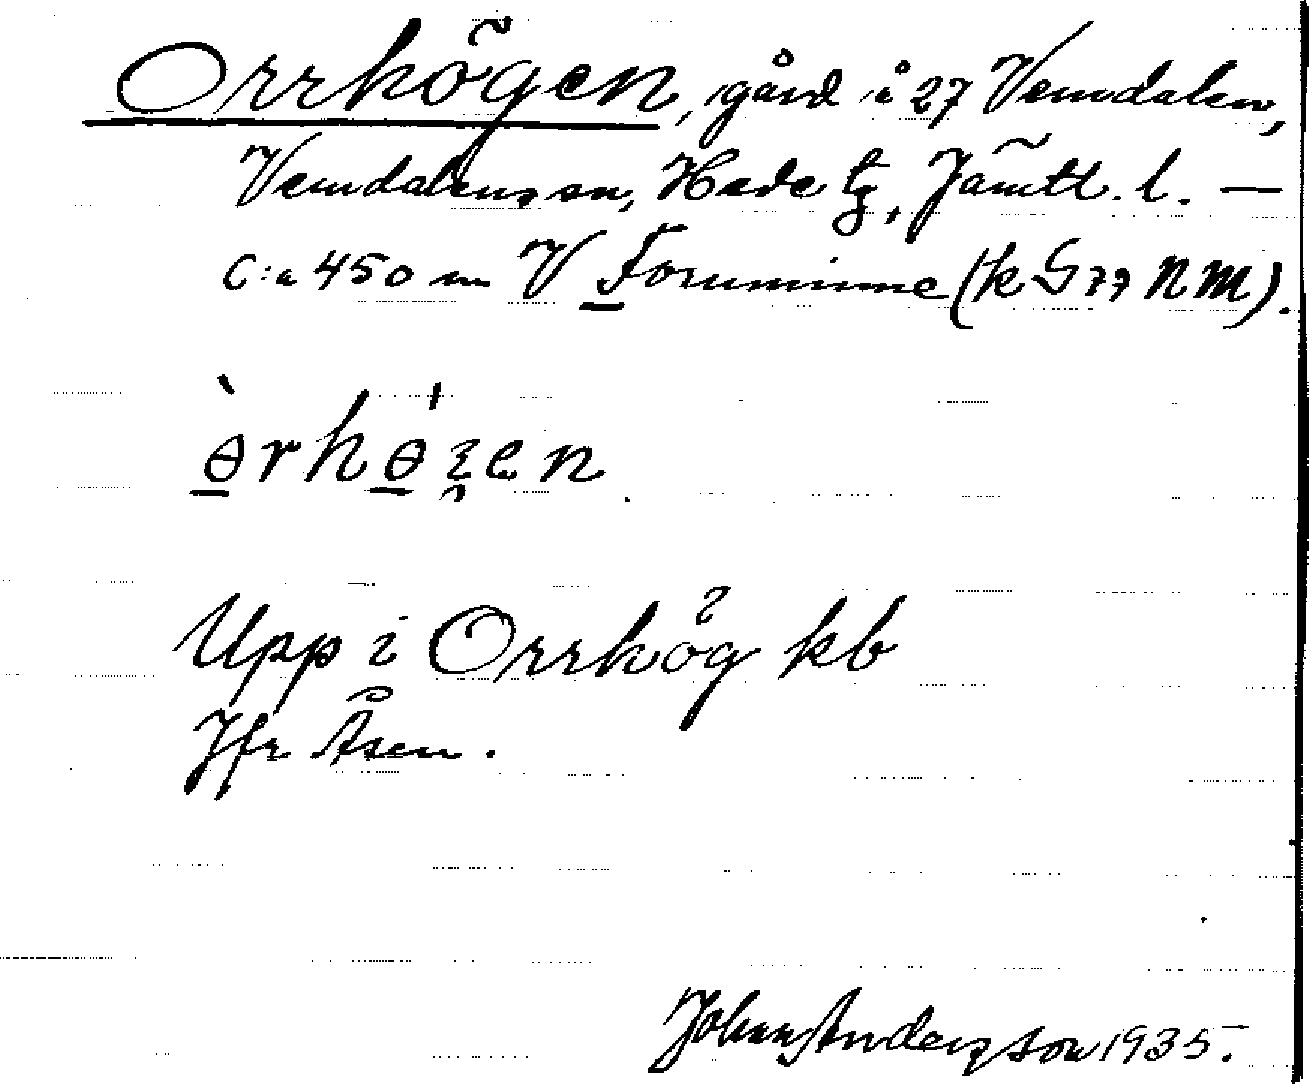 Orrhögen, gård i 27 Vemdalen,
Vemdalens sn, Hede tg, Jämtl. l. —
c:a 450 m V Fornminne (k G 77 NM).
ɵ̀rhɵ́ʒen
Upp i Orrhög kb
Jfr Åsen.
Johan Anderzson 1935.